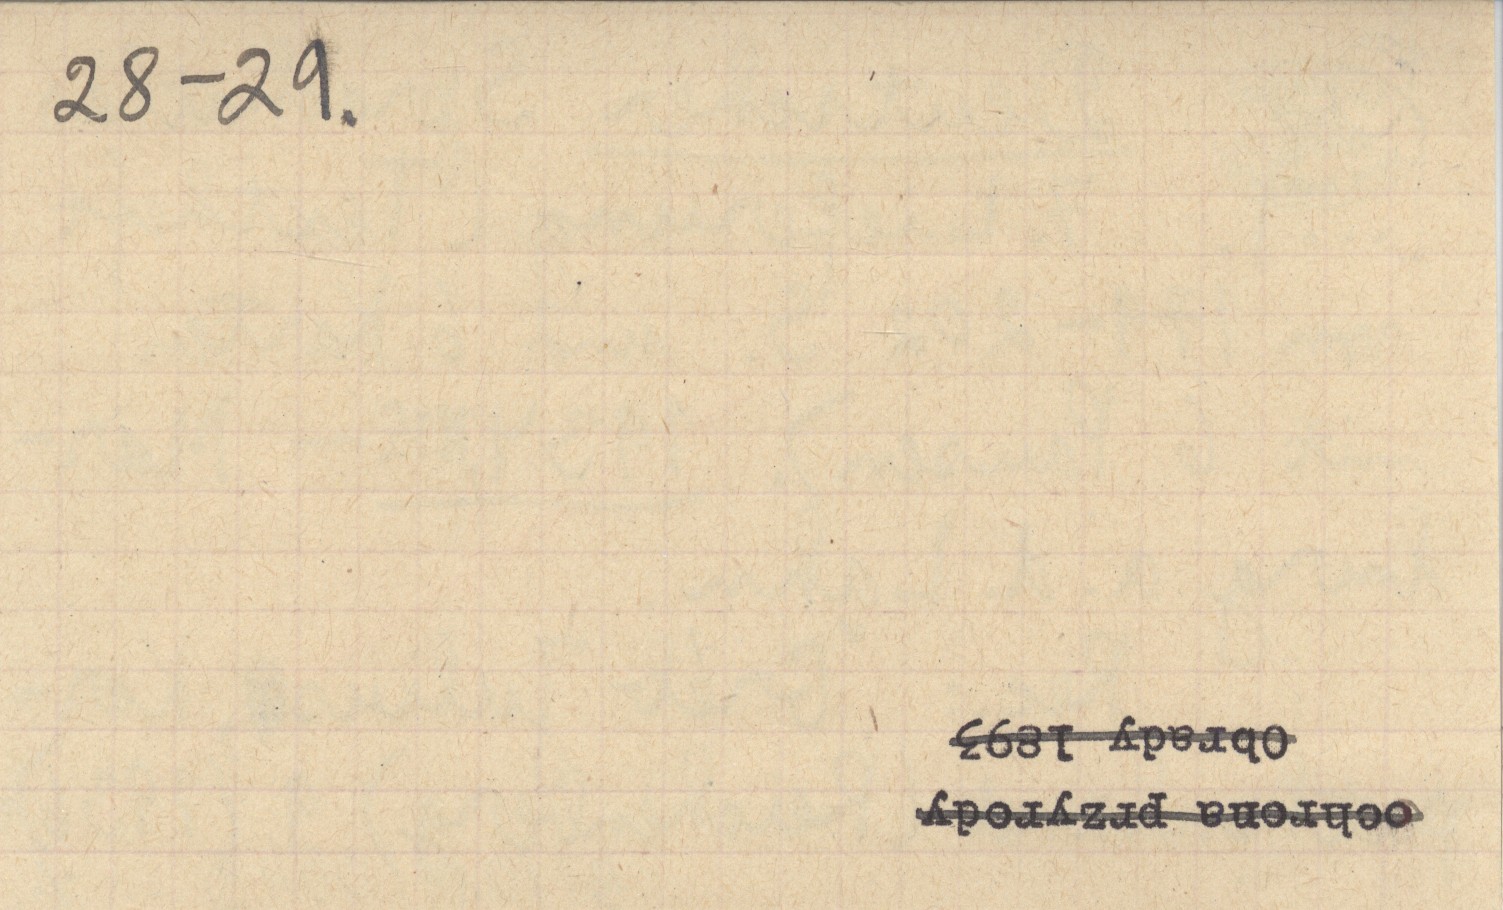 28-29.
ochrona przyrody
Obrady 1893